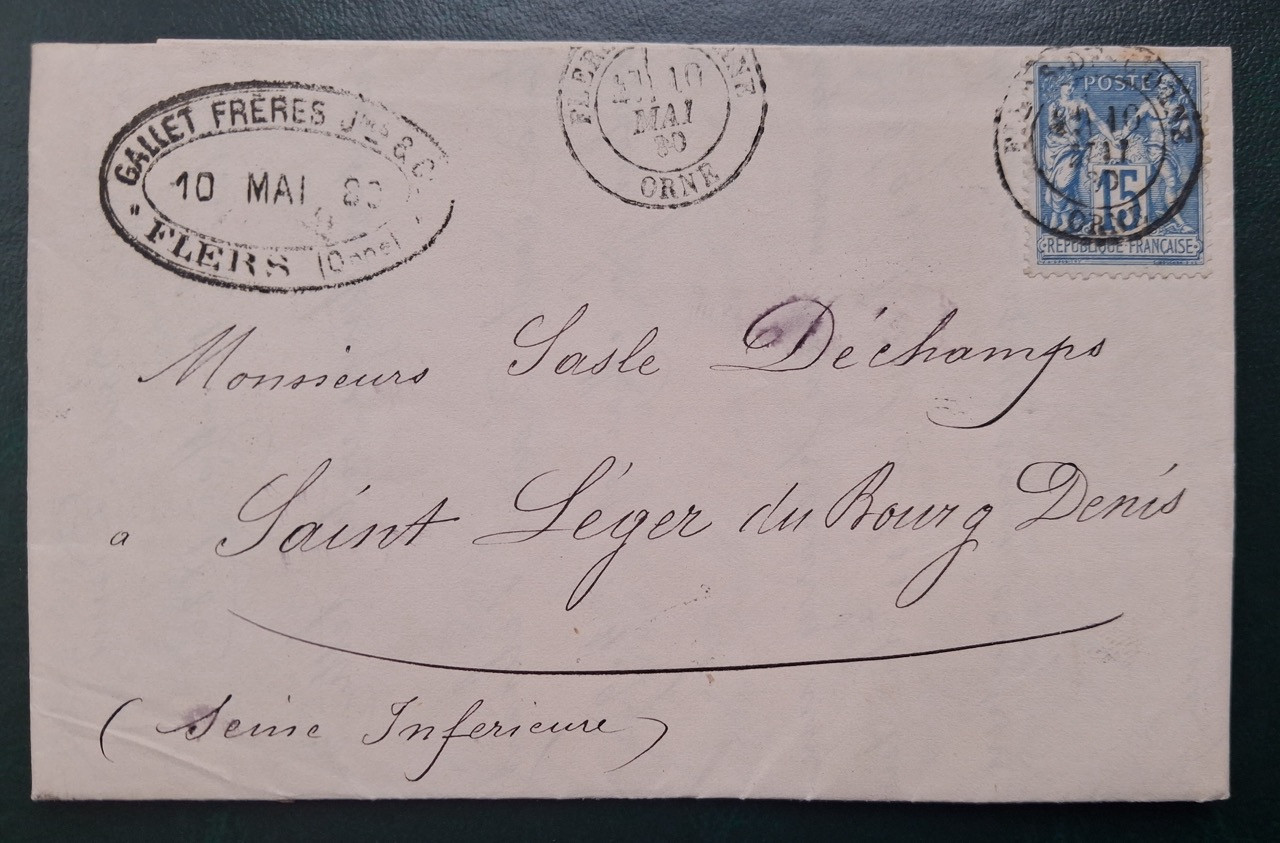 GALLET FRÈRES Jnes & C
10 MAI 8
" FLERS (Orne)
FLERS
10
MAI
80
ORNE
POSTES
10
MAI
80
15
ORNE
RÉPUBLIQUE FRANÇAISE
Monsieurs Sasle Déchamps
a Saint Léger du Bourg Denis
(Seine Inferieure)